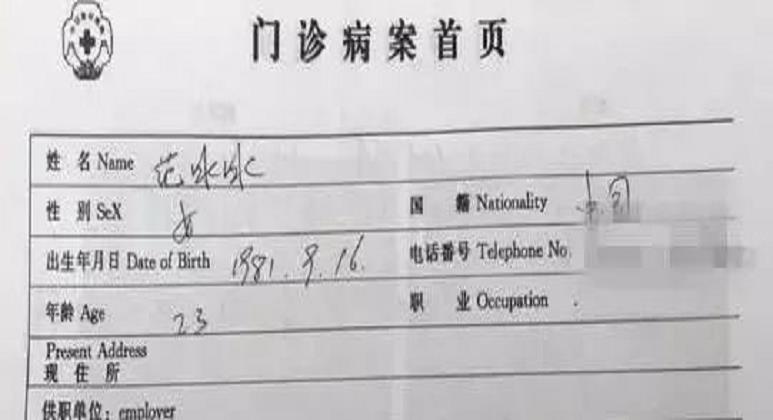 门诊病案首页
姓 名 Name 范冰冰
性 别 SeX 女 国 籍 Nationality 中国
出生年月日 Date of Birth 1981.9.16. 电话番号 Telephone No
年龄 Age 23 职 业 Occupation
Present Address
现 住 所
供职单位: employer